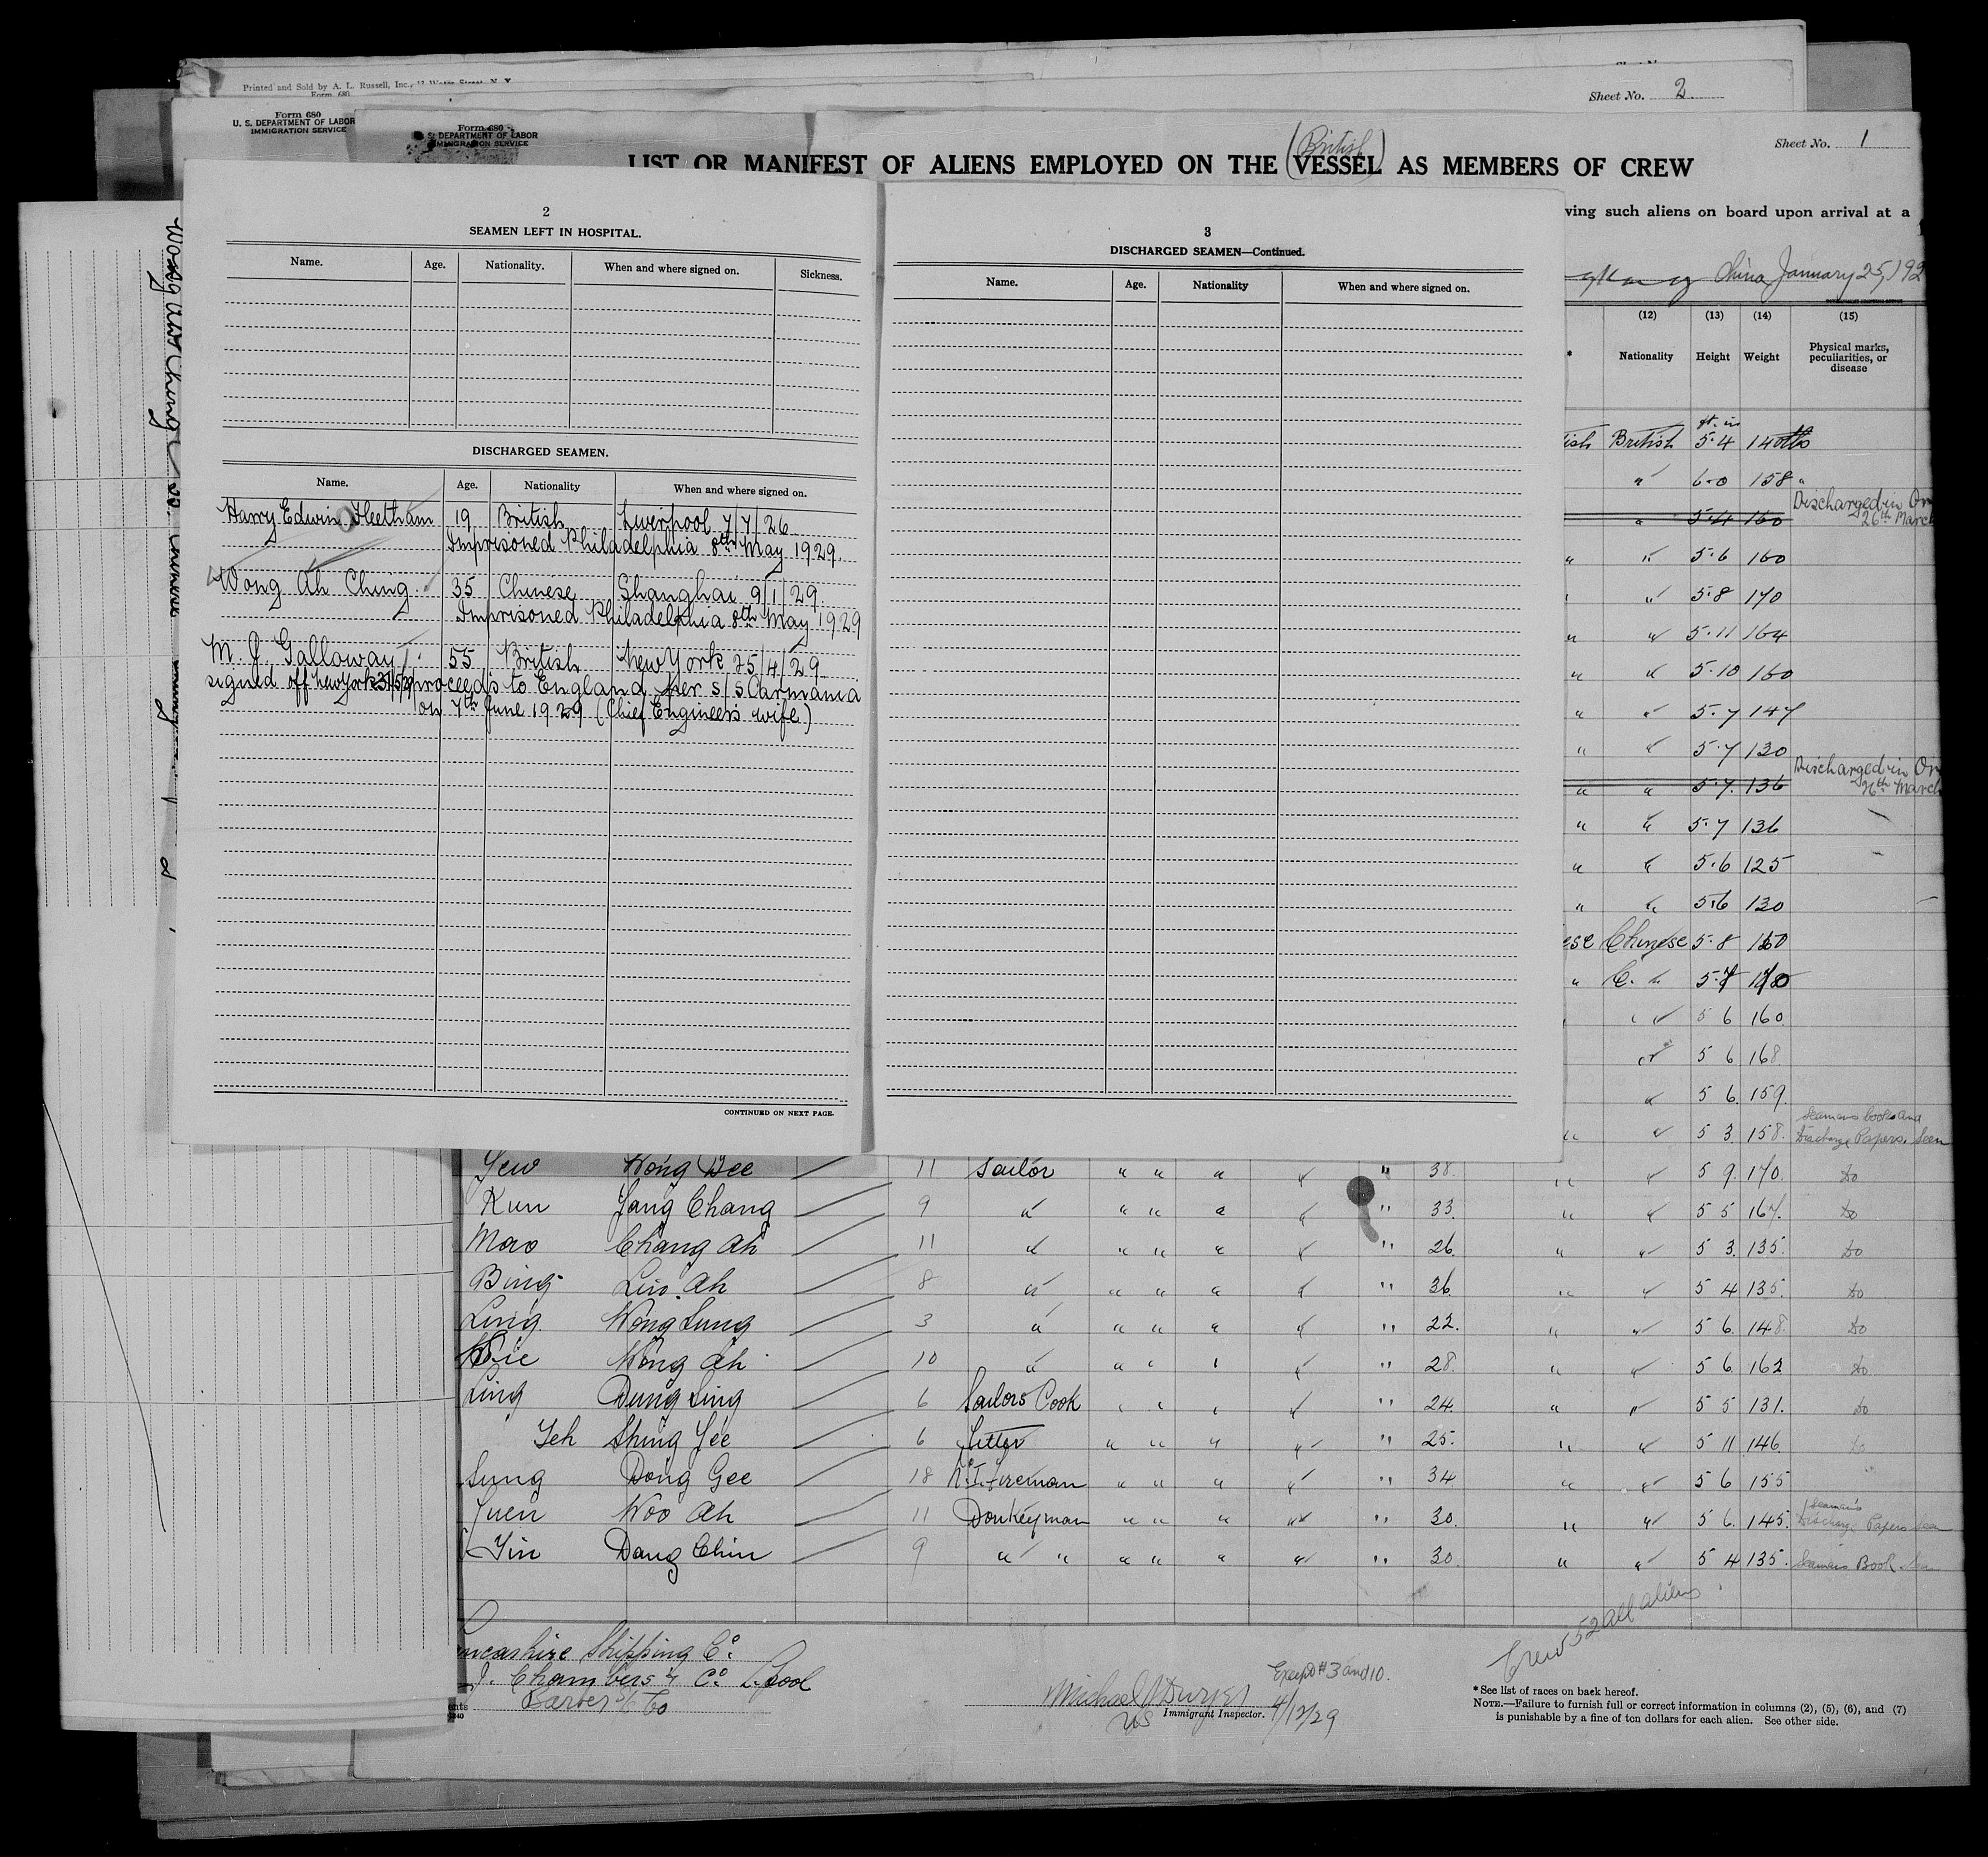 Printed and Sold by A. L. Russell, Inc.,
Form 680
Sheet No. 2
Form 680
U. S. DEPARTMENT OF LABOR
IMMIGRATION SERVICE
Form 680
S. DEPARTMENT OF LABOR
IMMIGRATION SERVICE
Sheet No. 1
(British)
LIST OR MANIFEST OF ALIENS EMPLOYED ON THE VESSEL AS MEMBERS OF CREW
ving such aliens on board upon arrival at a
China, January 25, 192
2
SEAMEN LEFT IN HOSPITAL.
Name. Age. Nationality. When and where signed on. Sickness.
DISCHARGED SEAMEN.
Name. Age. Nationality When and where signed on.
Harry Edwin 19 British Liverpool 7/7/26
Imprisoned Philadelphia 8th May 1929.
Wong Ah Ching. 35 Chinese Shanghai 9/1/29.
Imprisoned Philadelphia 8th May 1929
M. J. Galloway 55 British New York 25/4/29
signed off New York 31/5/29 proceeds to England per s/s Carmania
on 7th June 1929 (Chief Engineer's wife)
CONTINUED ON NEXT PAGE.
3
DISCHARGED SEAMEN—Continued.
Name. Age. Nationality When and where signed on.
(12) (13) (14) (15)
Nationality Height Weight Physical marks, peculiarities, or disease
ft. in
ish British 5.4 140 lbs
" 6.0 158 "
Discharged in
" 5.4 160 26th March
" " 5.6 160
" 5.8 170
" " 5.11 164
" " 5.10 160
" " 5.7 147
" " 5.7 130
Discharged in
" " 5.7. 136 26th March
" " 5.7 136
" " 5.6 125
" " 5.6 130
ese Chinese 5.8
" 5.7
" 5 6 160
" 5 6 168
" 5 6. 159.
Seamans books and
" " 5 3. 158. Discharge Papers. Seen
Yew Wong Dee 11 Sailor " " " " " 38. " " 5 9. 170. do
Kun Yang Chang 9 " " " " " " 33. " " 5 5 167. do
Mao Chang Ah 11 " " " " " " 26. " " 5 3. 135. do
Bing Liu Ah 8 " " " " " " 36. " " 5 4 135. do
Ling Wong Sung 3 " " " " " " 22. " " 5 6. 148. do
Wong Ah 10 " " " " " " 28. " " 5 6. 162 do
Ling Dung Sing 6 Sailors Cook " " " " " 24. " " 5 5 131. do
Yeh Shing Yee 6 Fitter " " " " " 25. " " 5 11 146. do
Sung Dong Gee 18 No. 1. Fireman " " " " " 34 " " 5 6 155
Seaman's
Yuen Woo Ah 11 Donkeyman " " " " " 30. " " 5 6. 145. Discharge Papers Seen
Yin Dang Chin 9 " " " " " " " 30. " " 5 4 135. Seamans Book Seen
Crew 52 all aliens
ncashire Shipping Co.
J. Chambers & Co. L'pool
Barber & Co
ents
Except # 3 and 10.
Michael J Dwyer
US Immigrant Inspector. 4/12/29
* See list of races on back hereof.
NOTE.—Failure to furnish full or correct information in columns (2), (5), (6), and (7)
is punishable by a fine of ten dollars for each alien. See other side.
Wong Ah Ching